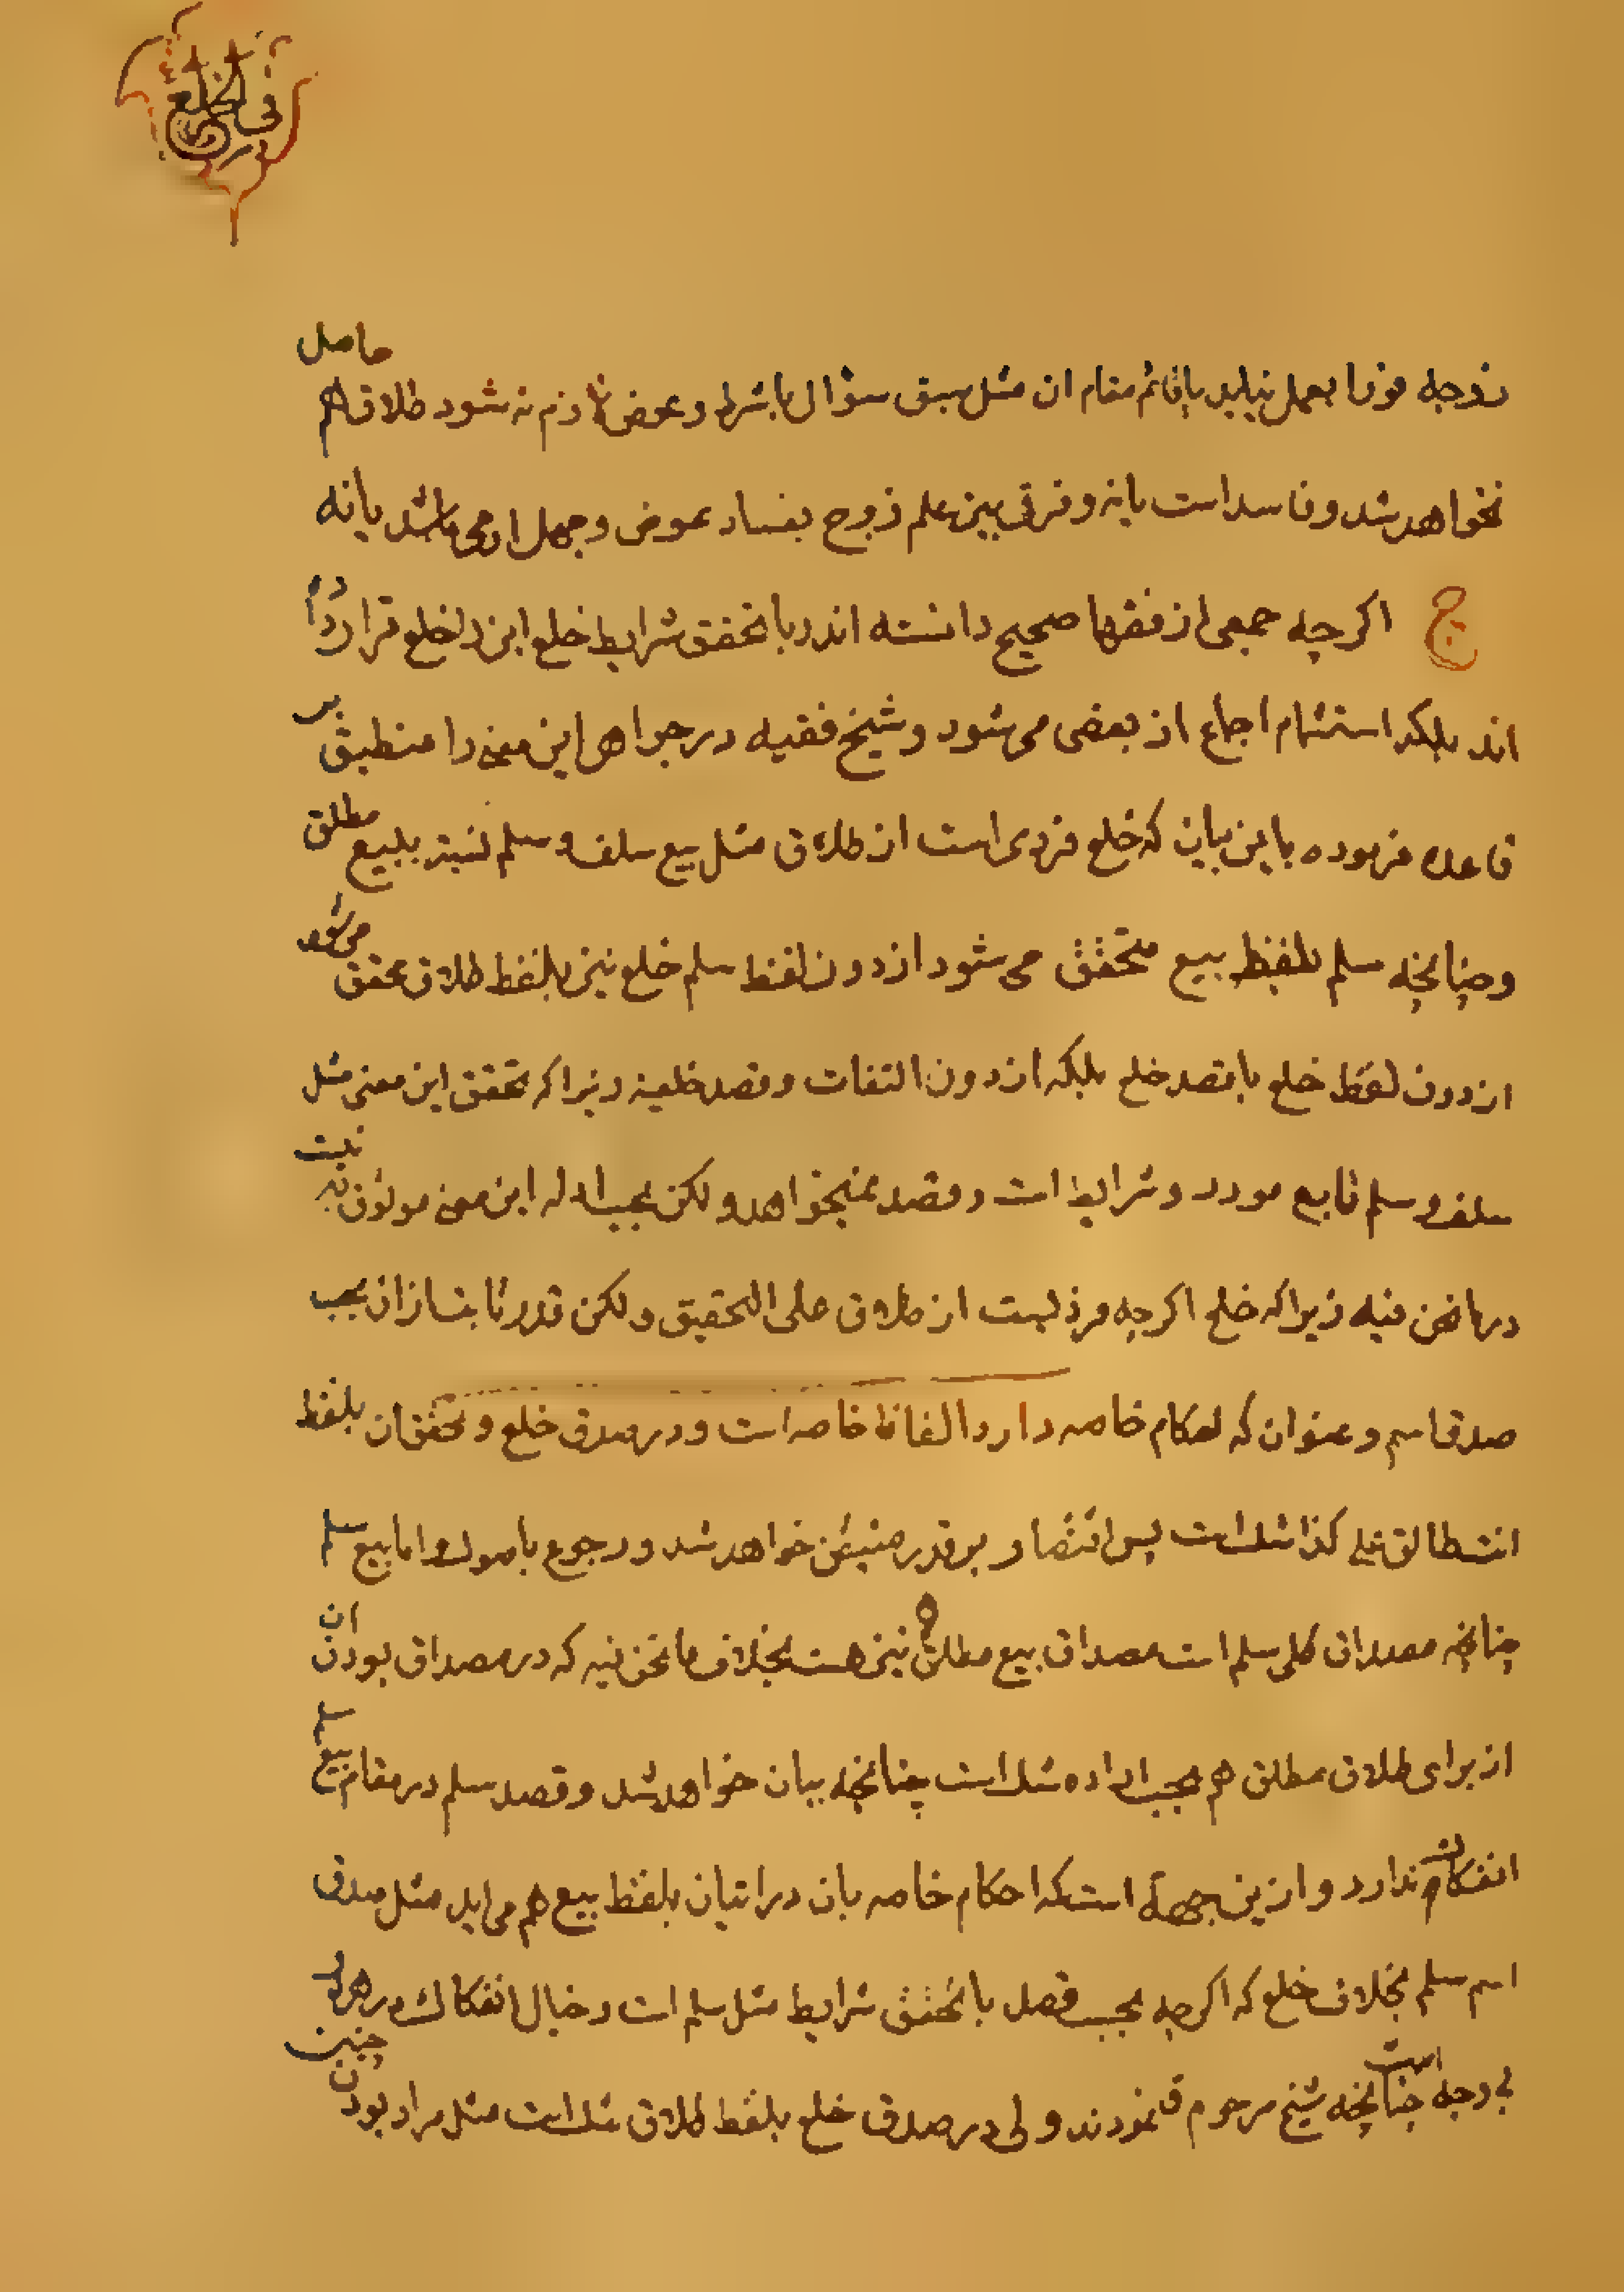 فی الخلع
زوجه فورا بعمل نیاید یا قائم مقام ان مثل سبق سؤال یا شرط و عوض لازم نه شود طلاق هم حاصل
نخواهد شد و فاسد است یا نه و فرقی بین علم زوج بفساد عوض و جهل او می باشد یا نه
ج اکرچه جمعی از فقها صحیح دانسته اند و با تحقق شرایط خلع این را خلع قرار داده
اند بلکه استشمام اجماع از بعضی می شود و شیخ فقیه در جواهر این معنی را منطبق بر
قاعده فرموده باین بیان که خلع فردی است از طلاق مثل بیع سلف و سلم نسبة ببیع مطلق
و چنانچه سلم بلفظ بیع متحقق می شود از دون لفظ سلم خلع نیز بلفظ طلاق محقق می شود
از دون لفظ خلع با قصد خلع بلکه از دون التفات و قصد خلعیه زیرا که تحقق این معنی مثل
سلف و سلم تابع مورد و شرایط است و قصد نمیخواهد و لکن بحسب ادله این معنی موثوق به نیست
در ما نحن فیه زیرا که خلع اکرچه فردیست از طلاق علی التحقیق و لکن قدر ثابت از ان بحسب
صدق اسم و عنوان که احکام خاصه دارد الفاظ خاصه است و در صدق خلع و تحقق ان بلفظ
انت طالق علی کذا شک است پس اقتصار بر قدر متیقن خواهد شد و رجوع باصول و اما بیع سلم
چنانچه مصداق کلی سلم است مصداق بیع مطلق نیز هست بخلاف ما نحن فیه که در مصداق بودن ان
از برای طلاق مطلق هم بحسب اراده شک است چنانچه بیان خواهد شد و قصد سلم در مقام بیع سلم
انفکاک ندارد و ازین جهة است که احکام خاصه بان در اتیان بلفظ بیع هم می اید مثل صدق
اسم سلم بخلاف خلع که اکرچه بحسب قصد با تحقق شرایط مثل سلم است و خیال انفکاک در هر دو
بی وجه است چنانچه شیخ مرحوم فرمودند ولی در صدق خلع بلفظ طلاق شک است مثل مراد بودن چنین